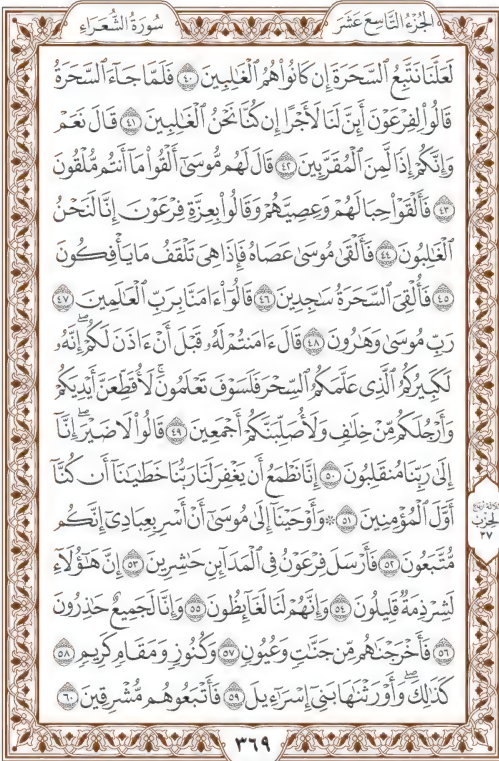 الجُزْءُ التَّاسِعَ عَشَرَ
سُورَةُ الشُّعَرَاءِ
لَعَلَّنَا نَتَّبِعُ ٱلسَّحَرَةَ إِن كَانُوا۟ هُمُ ٱلْغَـٰلِبِينَ ٤٠ فَلَمَّا جَآءَ ٱلسَّحَرَةُ
قَالُوا۟ لِفِرْعَوْنَ أَئِنَّ لَنَا لَأَجْرًا إِن كُنَّا نَحْنُ ٱلْغَـٰلِبِينَ ٤١ قَالَ نَعَمْ
وَإِنَّكُمْ إِذًا لَّمِنَ ٱلْمُقَرَّبِينَ ٤٢ قَالَ لَهُم مُّوسَىٰٓ أَلْقُوا۟ مَآ أَنتُم مُّلْقُونَ
٤٣ فَأَلْقَوْا۟ حِبَالَهُمْ وَعِصِيَّهُمْ وَقَالُوا۟ بِعِزَّةِ فِرْعَوْنَ إِنَّا لَنَحْنُ
ٱلْغَـٰلِبُونَ ٤٤ فَأَلْقَىٰ مُوسَىٰ عَصَاهُ فَإِذَا هِىَ تَلْقَفُ مَا يَأْفِكُونَ
٤٥ فَأُلْقِىَ ٱلسَّحَرَةُ سَـٰجِدِينَ ٤٦ قَالُوٓا۟ ءَامَنَّا بِرَبِّ ٱلْعَـٰلَمِينَ ٤٧
رَبِّ مُوسَىٰ وَهَـٰرُونَ ٤٨ قَالَ ءَامَنتُمْ لَهُۥ قَبْلَ أَنْ ءَاذَنَ لَكُمْ ۖ إِنَّهُۥ
لَكَبِيرُكُمُ ٱلَّذِى عَلَّمَكُمُ ٱلسِّحْرَ فَلَسَوْفَ تَعْلَمُونَ ۚ لَأُقَطِّعَنَّ أَيْدِيَكُمْ
وَأَرْجُلَكُم مِّنْ خِلَـٰفٍ وَلَأُصَلِّبَنَّكُمْ أَجْمَعِينَ ٤٩ قَالُوا۟ لَا ضَيْرَ ۖ إِنَّآ
إِلَىٰ رَبِّنَا مُنقَلِبُونَ ٥٠ إِنَّا نَطْمَعُ أَن يَغْفِرَ لَنَا رَبُّنَا خَطَـٰيَـٰنَآ أَن كُنَّآ
أَوَّلَ ٱلْمُؤْمِنِينَ ٥١ ۞ وَأَوْحَيْنَآ إِلَىٰ مُوسَىٰٓ أَنْ أَسْرِ بِعِبَادِىٓ إِنَّكُم
مُّتَّبَعُونَ ٥٢ فَأَرْسَلَ فِرْعَوْنُ فِى ٱلْمَدَآئِنِ حَـٰشِرِينَ ٥٣ إِنَّ هَـٰٓؤُلَآءِ
لَشِرْذِمَةٌ قَلِيلُونَ ٥٤ وَإِنَّهُمْ لَنَا لَغَآئِظُونَ ٥٥ وَإِنَّا لَجَمِيعٌ حَـٰذِرُونَ
٥٦ فَأَخْرَجْنَـٰهُم مِّن جَنَّـٰتٍ وَعُيُونٍ ٥٧ وَكُنُوزٍ وَمَقَامٍ كَرِيمٍ ٥٨
كَذَٰلِكَ ۖ وَأَوْرَثْنَـٰهَا بَنِىٓ إِسْرَٰٓءِيلَ ٥٩ فَأَتْبَعُوهُم مُّشْرِقِينَ ٦٠
الحِزْبُ
٣٧
٣٦٩